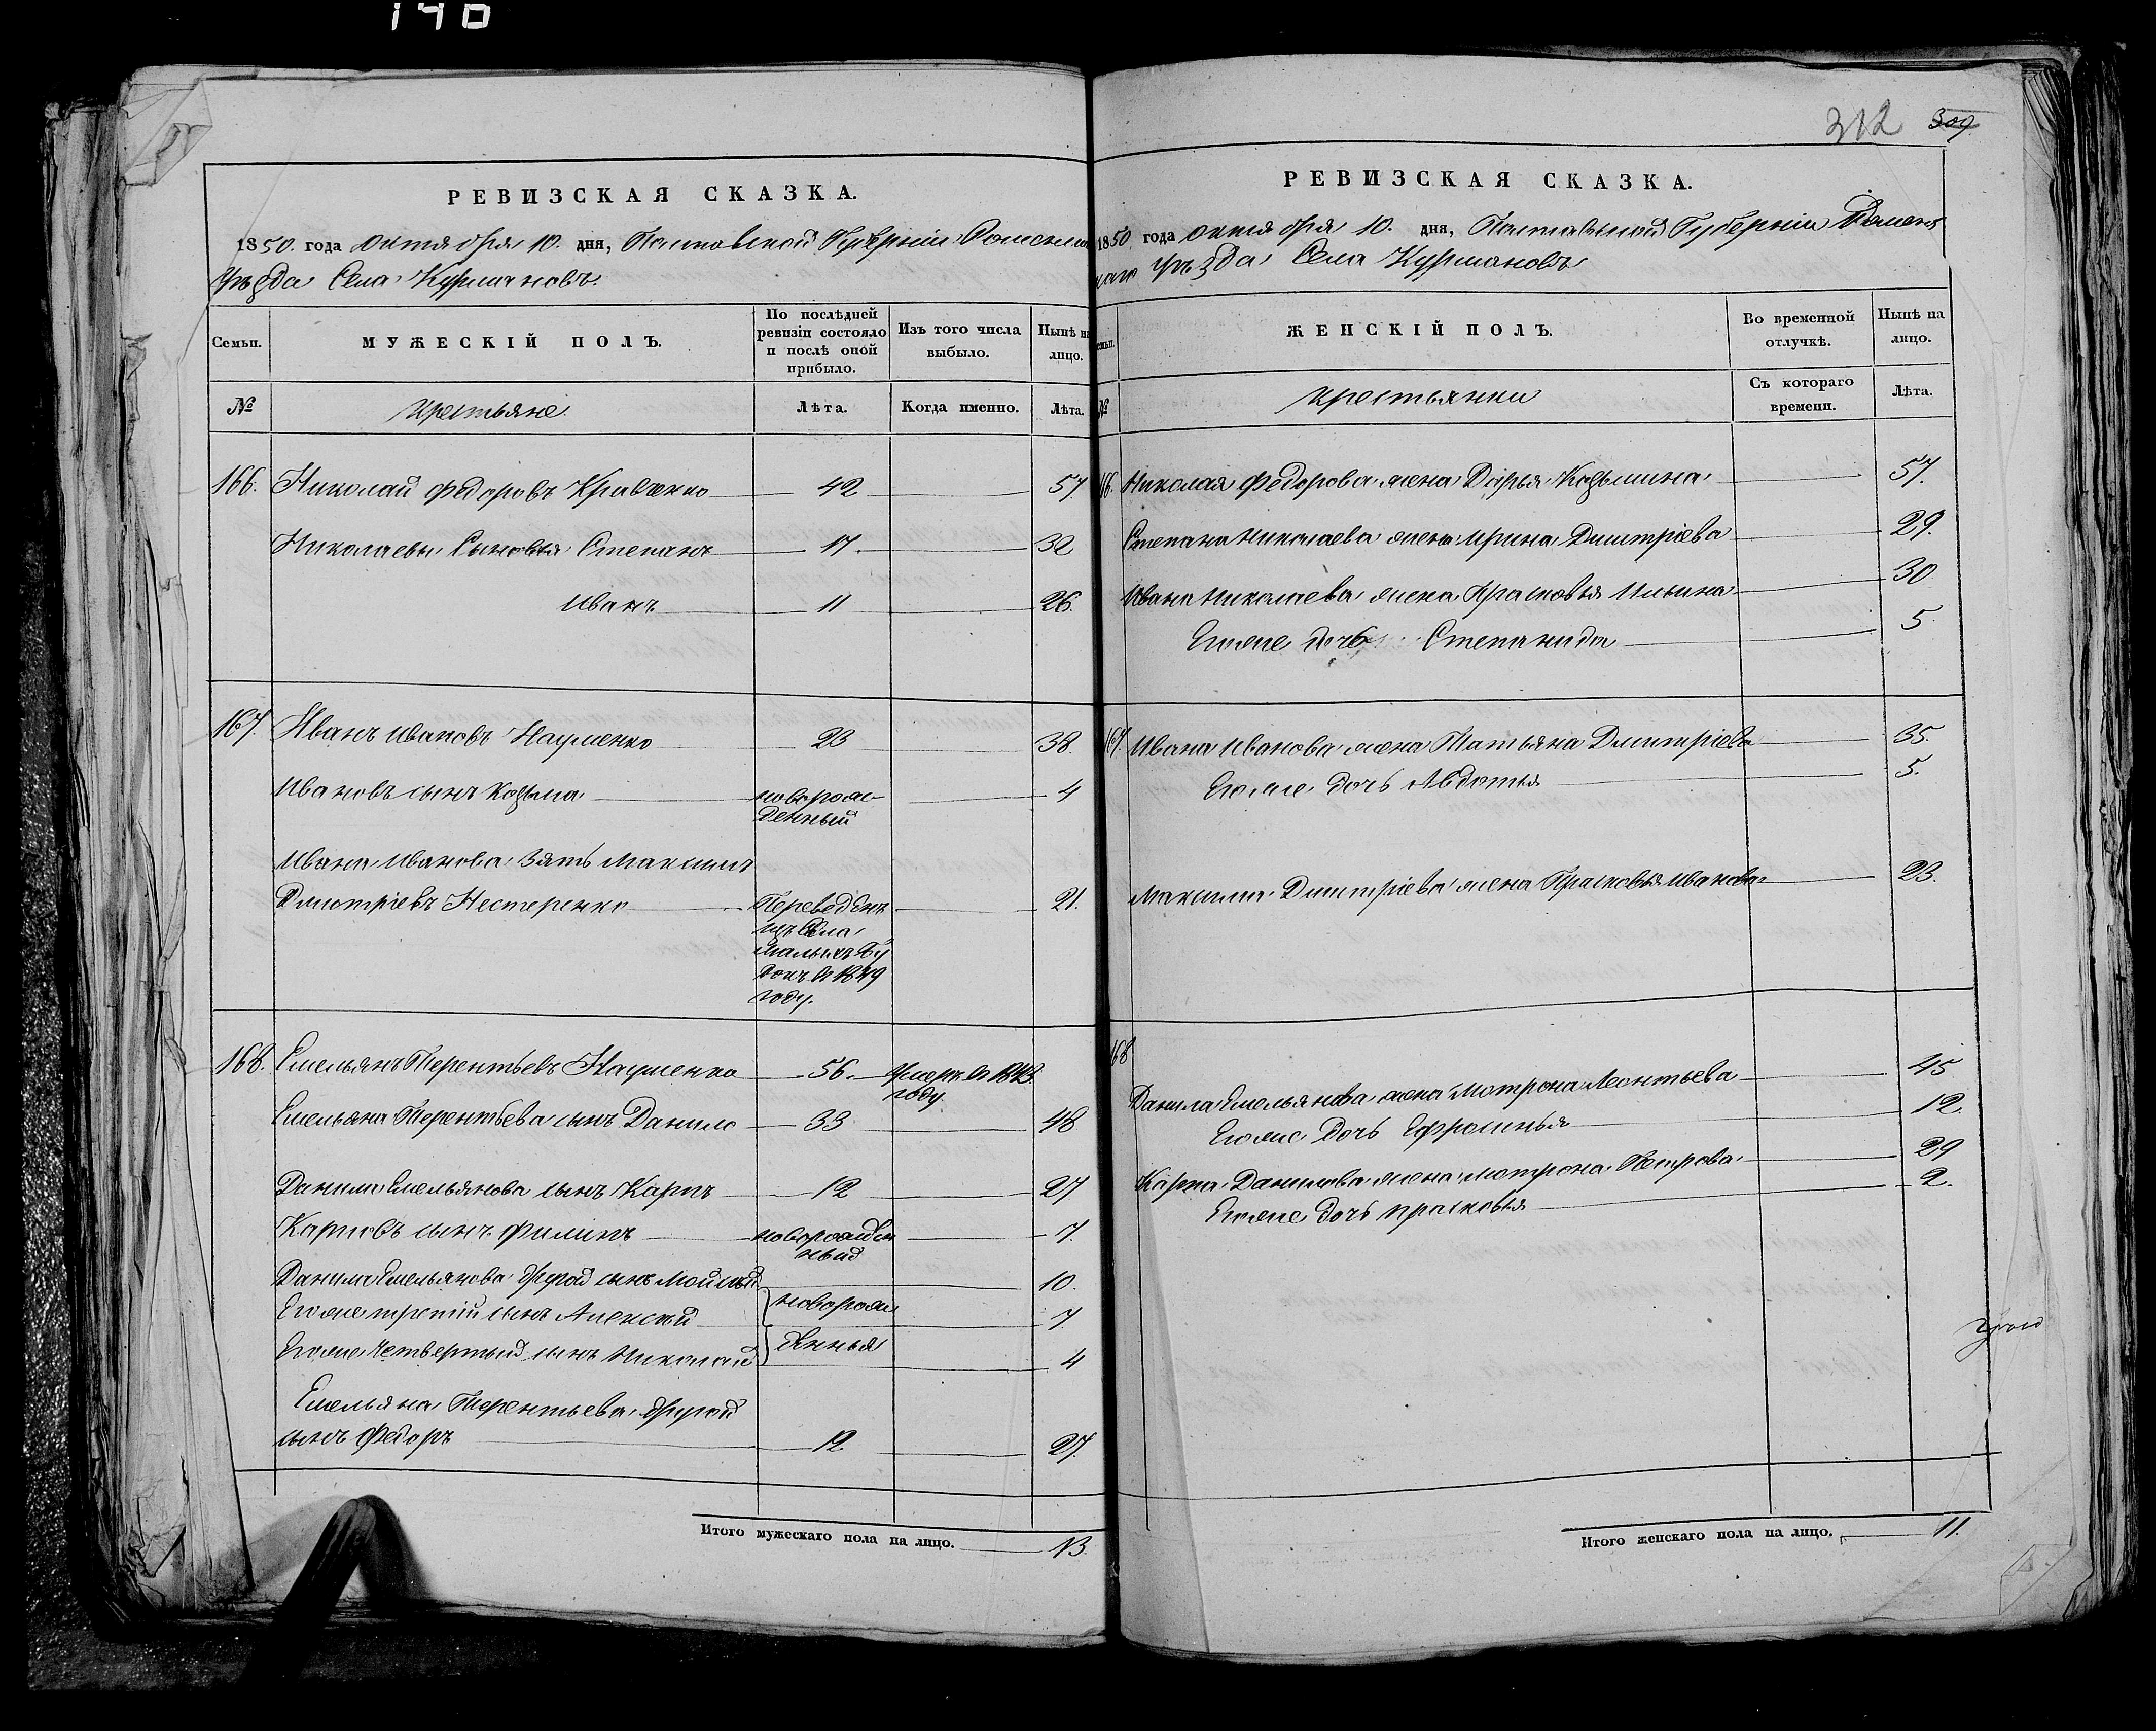 140
312 309
РЕВИЗСКАЯ СКАЗКА.
1850. года октября 10. дня, Полтавской Губерніи Роменска
Уѣзда Села Курмановъ.
Семьи.
МУЖЕСКІЙ ПОЛЪ.
По послѣдней ревизіи состояло и послѣ оной прибыло.
Изъ того числа выбыло.
Нынѣ на лицо.
№ Крестьяне. Лѣта. Когда именно. Лѣта.
166. Николай Федоровъ Кравченко 42 57.
Николаевы Сыновья Степанъ 17. 32
Иванъ 11 26.
167. Иванъ Ивановъ Науменко 23 38.
Ивановъ сынъ Козьма новорож- 4
денный
Ивана Иванова Зять Максимъ
Дмитріевъ Нестеренко Переведенъ 21.
изъ Села
Малыхъ Бу
докъ въ 1849
году.
168. Емельянъ Терентьевъ Науменко 56. Умеръ въ 1843
году
Емельяна Терентьева сынъ Данило 33 48
Данила Емельянова сынъ Карпъ 12 27
Карповъ сынъ Филипъ новорожден 7.
ный
Данила Емельянова другой сынъ Мойсей 10.
Егоже третій сынъ Алексѣй новорож 7.
Егоже четвертый сынъ Николай денныя 4
Емельяна Терентьева другой
сынъ Федоръ 12 27.
Итого мужескаго пола на лицо. 13.
РЕВИЗСКАЯ СКАЗКА.
1850 года октября 10. дня, Полтавской Губерніи Роменс
каго Уѣзда Села Курмановъ
Семьи.
ЖЕНСКІЙ ПОЛЪ.
Во временной отлучкѣ.
Нынѣ на лицо.
№ Крестьянки Съ котораго времени. Лѣта.
166. Николая Федорова жена Дарья Козьмина 57.
Степана Николаева жена Ирина Дмитріева 29.
Ивана Николаева жена Прасковья Ильина 30
Егоже дочь Степанида 5.
167. Ивана Иванова жена Татьяна Дмитріева 35.
Егоже дочь Авдотья 5.
Максима Дмитріева жена Прасковья Иванова 23.
168
Данила Емельянова жена Мотрона Леонтьева 45
Егоже дочь Ефросинья 12.
Карпа Данилова жена Мотрона Петрова 29
Егоже дочь Прасковья 2.
Итого женскаго пола на лицо. 11.